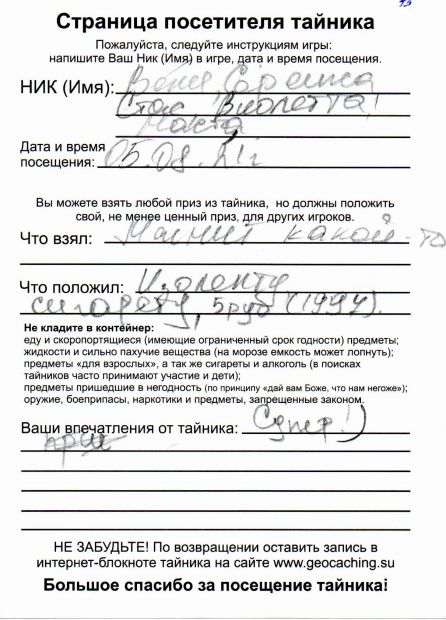 Страница посетителя тайника
Пожалуйста, следуйте инструкциям игры:
напишите Ваш Ник (Имя) в игре, дата и время посещения.
НИК (Имя):
Стас Виолетта!
Дата и время
посещения: 05.08.21г
Вы можете взять любой приз из тайника, но должны положить
свой, не менее ценный приз, для других игроков.
Что взял: Магнит какой-то
Что положил: Изоленту
сигарету, 5 руб (1997).
Не кладите в контейнер:
еду и скоропортящиеся (имеющие ограниченный срок годности) предметы;
жидкости и сильно пахучие вещества (на морозе емкость может лопнуть);
предметы «для взрослых», а так же сигареты и алкоголь (в поисках
тайников часто принимают участие и дети);
предметы пришедшие в негодность (по принципу «дай вам Боже, что нам негоже»);
оружие, боеприпасы, наркотики и предметы, запрещенные законом.
Ваши впечатления от тайника: Супер!)
НЕ ЗАБУДЬТЕ! По возвращении оставить запись в
интернет-блокноте тайника на сайте www.geocaching.su
Большое спасибо за посещение тайника!